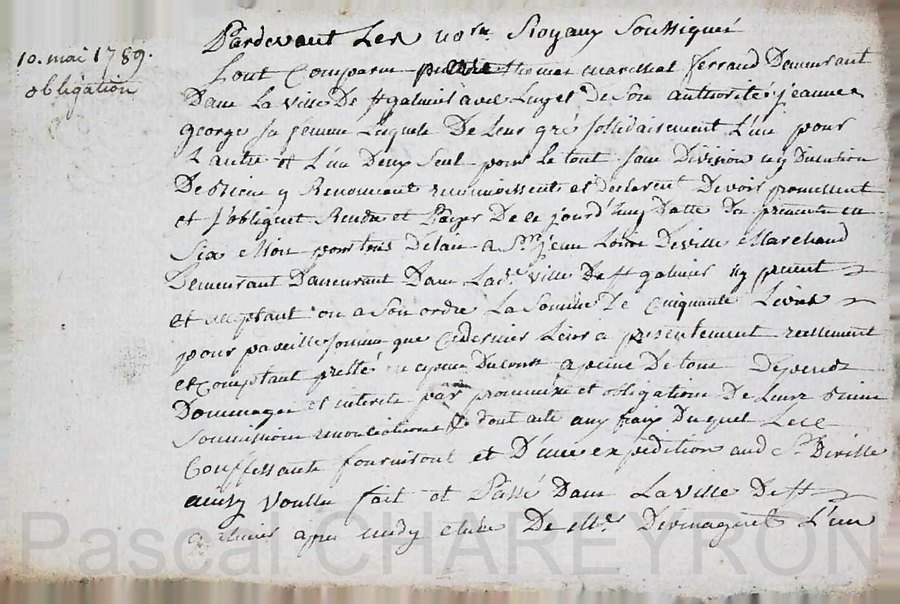 10. mai 1789.
obligation
Pardevant Les no.res Royaux Soussignés
Sont Comparus thomas marechal ferrand Demeurant
Dans La ville De st galmier avec Luy et de Son authorité jeanne
george sa femme Laquele De Leur gré sollidairement L'un pour
L'autre et L'un Deux Seul pour Le tout sans Division ny Discution
De Biens y Renonceant reconnoissent et declarent Devoir promettent
et s'obligent Rendre et Payer De ce jourd'huy Datte Des présentes en
Six Mois pour tous Délais a Sr. jean Deville Marchand
Demeurant Demeurant Dans Lad.e ville De st galmier icy présent
et acceptant ou a Son ordre La Somme De Cinquante Livres
pour pareille Somme que Cedernier Leur a présentement reellement
et Comptant pretté a peine De tous Dépends
Dommages et intérêts par promesse et obligations De Leurs Biens
Soumissions renonciations & dont acte aux fraix Duquel Les
Confessants fourniront et D'une expédition aud. Sr. Deville
ainsy Voullu fait et Passé Dans La ville De st
galmier apres midy etude De Me. L'un
Pascal CHAREYRON